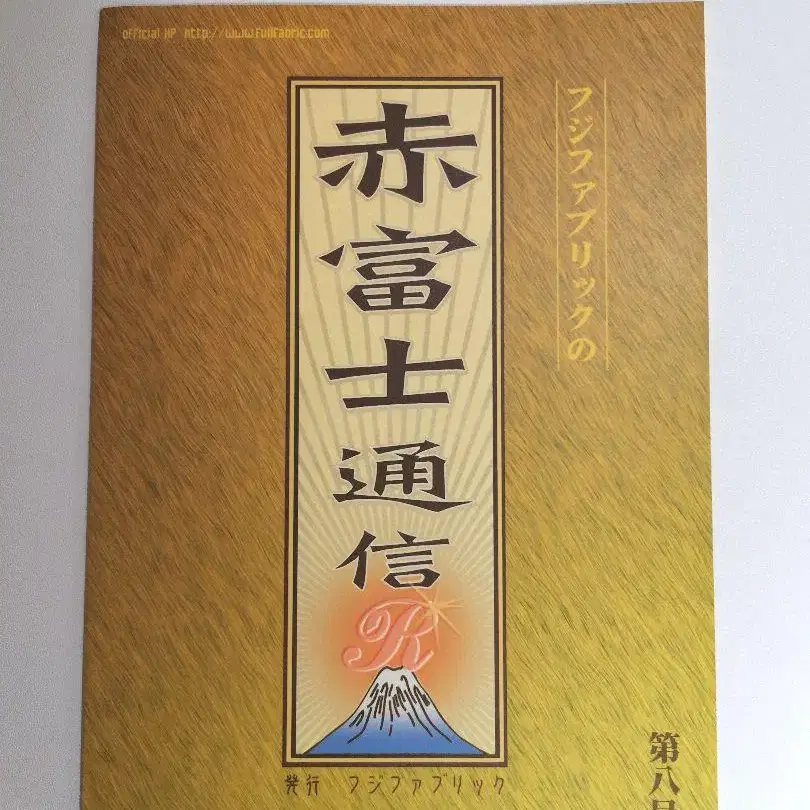 official HP http://www.fujifabric.com
フジファブリックの
赤富士通信
R
発行 フジファブリック
第八号